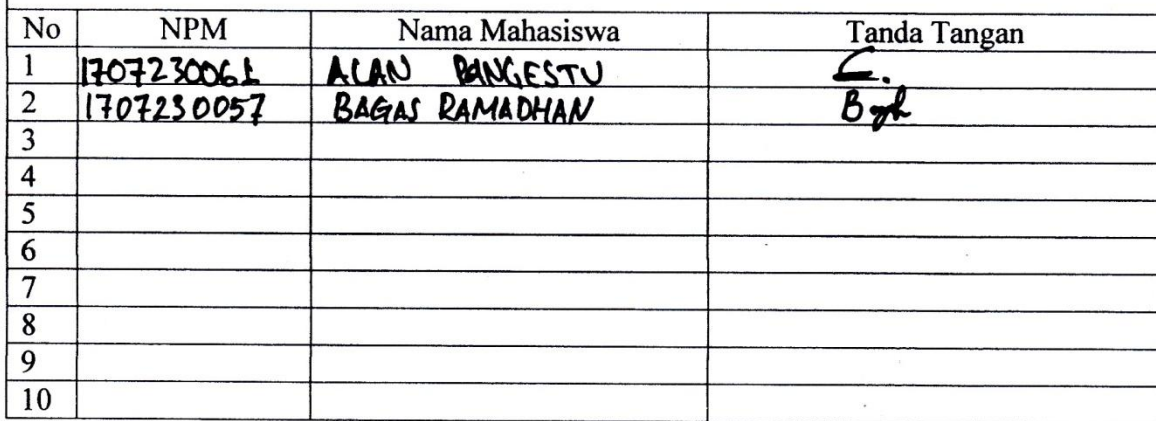 No NPM Nama Mahasiswa Tanda Tangan
1 1707230061 ALAN PANGESTU
2 1707230057 BAGAS RAMADHAN
3
4
5
6
7
8
9
10